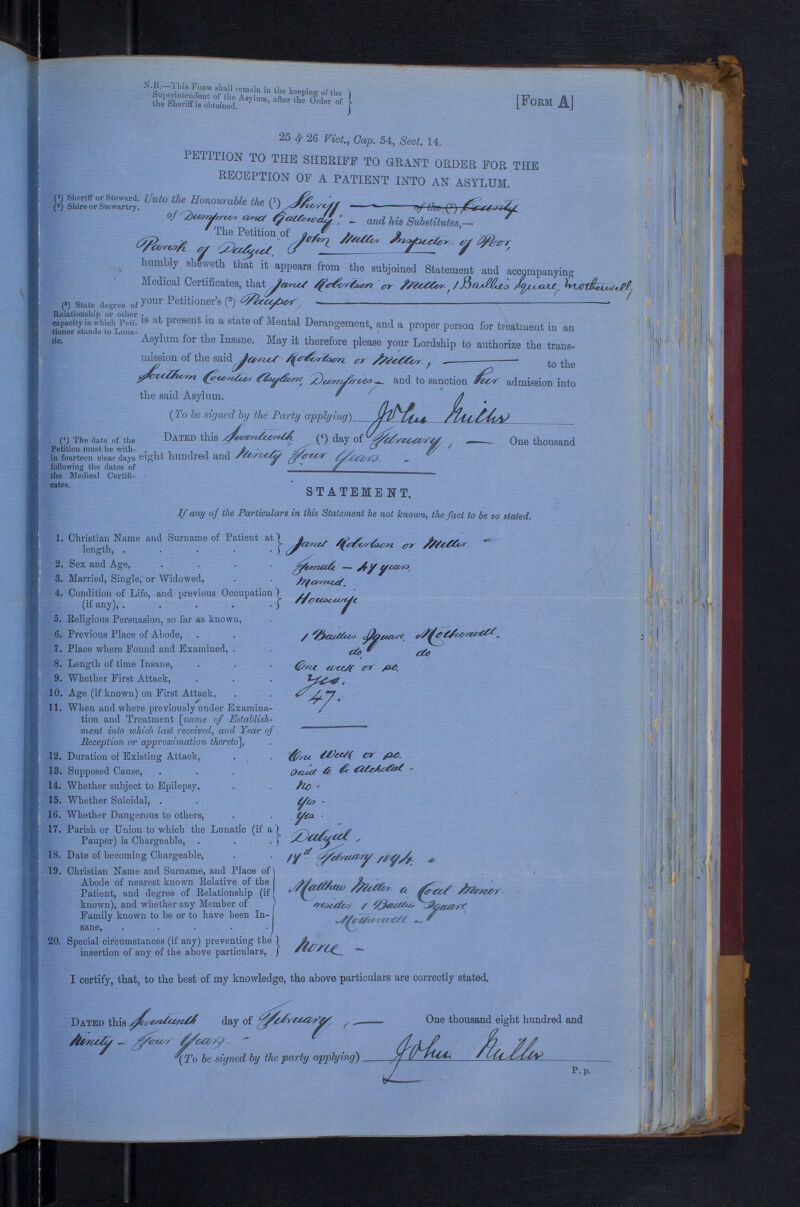 N.B.—This Form shall remain in the keeping of the
Superintendent of the Asylum, after the Order of
the Sheriff is obtained.
[Form A]
25 & 26 Vict., Cap. 54, Sect. 14.
PETITION TO THE SHERIFF TO GRANT ORDER FOR THE
RECEPTION OF A PATIENT INTO AN ASYLUM.
(¹) Sheriff or Steward.
(²) Shire or Stewartry.
Unto the Honourable the (¹) Sheriff — of the (²) County
of Dumfries and Galloway — and his Substitutes,—
The Petition of John Miller Inspector of Poor,
Parish of Dalziel.
humbly sheweth that it appears from the subjoined Statement and accompanying
Medical Certificates, that Janet Robertson or Miller, 1 Baillies Square, Motherwell,
(³) State degree of
Relationship or other
capacity in which Peti-
tioner stands to Luna-
tic.
your Petitioner's (³) Pauper,
is at present in a state of Mental Derangement, and a proper person for treatment in an
Asylum for the Insane. May it therefore please your Lordship to authorize the trans-
mission of the said Janet Robertson or Miller, — to the
Southern Counties Asylum, Dumfries — and to sanction her admission into
the said Asylum.
(To be signed by the Party applying) John Miller
(⁴) The date of the
Petition must be with-
in fourteen clear days
following the dates of
the Medical Certifi-
cates.
Dated this Seventeenth (⁴) day of February, — One thousand
eight hundred and Ninety Four Years. -
STATEMENT.
If any of the Particulars in this Statement be not known, the fact to be so stated.
1. Christian Name and Surname of Patient at
length, . Janet Robertson or Miller
2. Sex and Age, Female — 47 years
3. Married, Single, or Widowed, Married.
4. Condition of Life, and previous Occupation
(if any), . Housewife
5. Religious Persuasion, so far as known,
6. Previous Place of Abode, . 1 Baillies Square, Motherwell.
7. Place where Found and Examined, . do do
8. Length of time Insane, One week or so.
9. Whether First Attack, Yes.
10. Age (if known) on First Attack, 47.
11. When and where previously under Examina-
tion and Treatment [name of Establish-
ment into which last received, and Year of
Reception or approximation thereto], ———
12. Duration of Existing Attack, One Week or so.
13. Supposed Cause, said to be Alcohol -
14. Whether subject to Epilepsy, No.
15. Whether Suicidal, . Yes.
16. Whether Dangerous to others, Yes.
17. Parish or Union to which the Lunatic (if a
Pauper) is Chargeable, . Dalziel.
18. Date of becoming Chargeable, 17th February 1894.
19. Christian Name and Surname, and Place of
Abode of nearest known Relative of the
Patient, and degree of Relationship (if
known), and whether any Member of
Family known to be or to have been In-
sane, .
Matthew Miller a Coal Miner
resides 1 Baillies Square
Motherwell -
20. Special circumstances (if any) preventing the
insertion of any of the above particulars, None -
I certify, that, to the best of my knowledge, the above particulars are correctly stated.
Dated this Seventeenth day of February, — One thousand eight hundred and
Ninety - Four Years -
(To be signed by the party applying) John Miller
P. p.